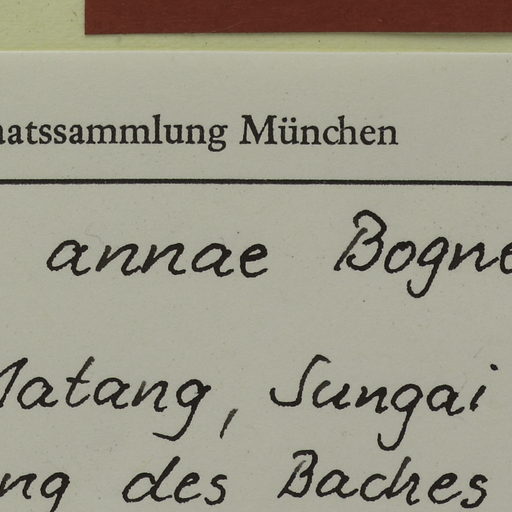 aatssammlung München
annae Bogne
Matang, Sungai
ng des Baches